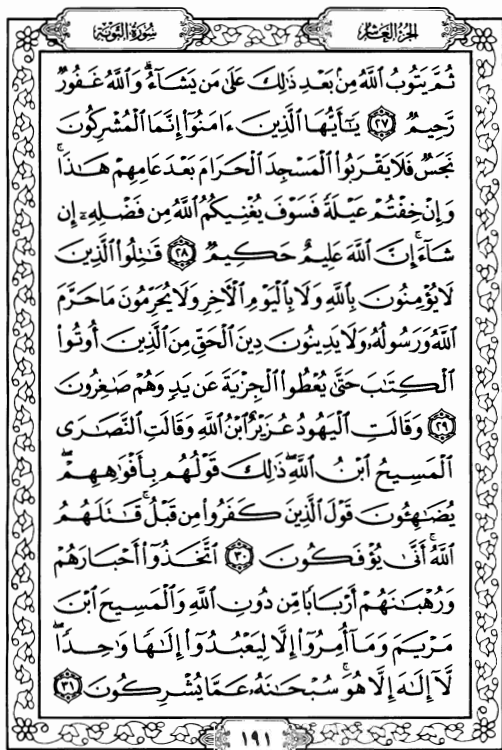 الجزء العاشر
سورة التوبة
ثُمَّ يَتُوبُ ٱللَّهُ مِنۢ بَعْدِ ذَٰلِكَ عَلَىٰ مَن يَشَآءُ ۗ وَٱللَّهُ غَفُورٌ
رَّحِيمٌ ۝٢٧ يَـٰٓأَيُّهَا ٱلَّذِينَ ءَامَنُوٓا۟ إِنَّمَا ٱلْمُشْرِكُونَ
نَجَسٌ فَلَا يَقْرَبُوا۟ ٱلْمَسْجِدَ ٱلْحَرَامَ بَعْدَ عَامِهِمْ هَـٰذَا ۚ
وَإِنْ خِفْتُمْ عَيْلَةً فَسَوْفَ يُغْنِيكُمُ ٱللَّهُ مِن فَضْلِهِۦٓ إِن
شَآءَ ۚ إِنَّ ٱللَّهَ عَلِيمٌ حَكِيمٌ ۝٢٨ قَـٰتِلُوا۟ ٱلَّذِينَ
لَا يُؤْمِنُونَ بِٱللَّهِ وَلَا بِٱلْيَوْمِ ٱلْـَٔاخِرِ وَلَا يُحَرِّمُونَ مَا حَرَّمَ
ٱللَّهُ وَرَسُولُهُۥ وَلَا يَدِينُونَ دِينَ ٱلْحَقِّ مِنَ ٱلَّذِينَ أُوتُوا۟
ٱلْكِتَـٰبَ حَتَّىٰ يُعْطُوا۟ ٱلْجِزْيَةَ عَن يَدٍ وَهُمْ صَـٰغِرُونَ
۝٢٩ وَقَالَتِ ٱلْيَهُودُ عُزَيْرٌ ٱبْنُ ٱللَّهِ وَقَالَتِ ٱلنَّصَـٰرَى
ٱلْمَسِيحُ ٱبْنُ ٱللَّهِ ۖ ذَٰلِكَ قَوْلُهُم بِأَفْوَٰهِهِمْ ۖ
يُضَـٰهِـُٔونَ قَوْلَ ٱلَّذِينَ كَفَرُوا۟ مِن قَبْلُ ۚ قَـٰتَلَهُمُ
ٱللَّهُ ۚ أَنَّىٰ يُؤْفَكُونَ ۝٣٠ ٱتَّخَذُوٓا۟ أَحْبَارَهُمْ
وَرُهْبَـٰنَهُمْ أَرْبَابًا مِّن دُونِ ٱللَّهِ وَٱلْمَسِيحَ ٱبْنَ
مَرْيَمَ وَمَآ أُمِرُوٓا۟ إِلَّا لِيَعْبُدُوٓا۟ إِلَـٰهًا وَٰحِدًا ۖ
لَّآ إِلَـٰهَ إِلَّا هُوَ ۚ سُبْحَـٰنَهُۥ عَمَّا يُشْرِكُونَ ۝٣١
١٩١